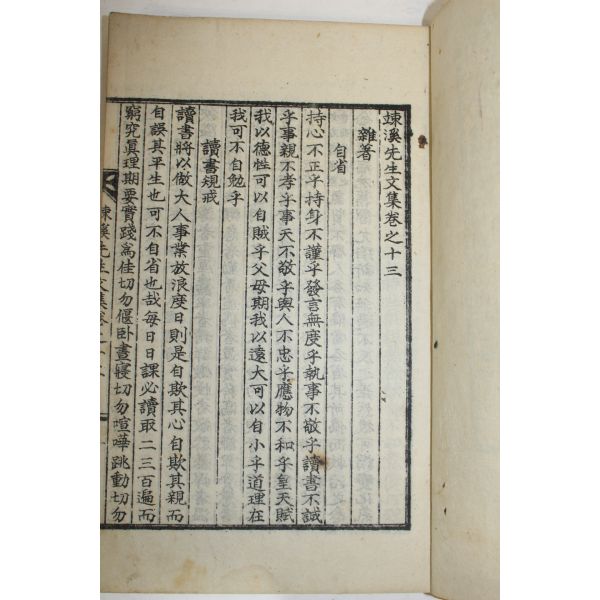 竦溪先生文集卷之十三
雜著
自省
持心不正乎持身不謹乎發言無度乎執事不敬乎讀書不誠
乎事親不孝乎事天不敬乎與人不忠乎應物不和乎皇天賦
我以德性可以自賊乎父母期我以遠大可以自小乎道理在
我可不自勉乎
讀書規戒
讀書將以做大人事業放浪度日則是自欺其心自欺其親而
自誤其平生也可不自省也哉每日日課必讀取二三百遍而
窮究眞理期要實踐爲佳切勿偃臥晝寢切勿喧嘩跳動切勿
竦溪先生文集卷之十三